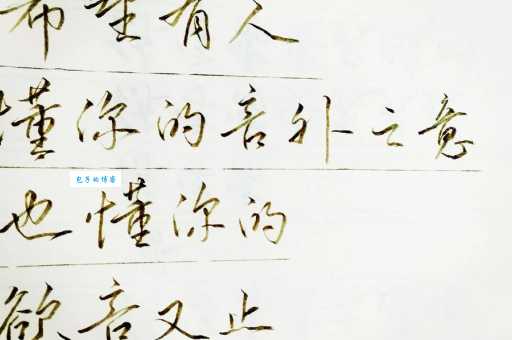 希望有人
懂你的言外之意
包子的博客
也懂你的
欲言又止